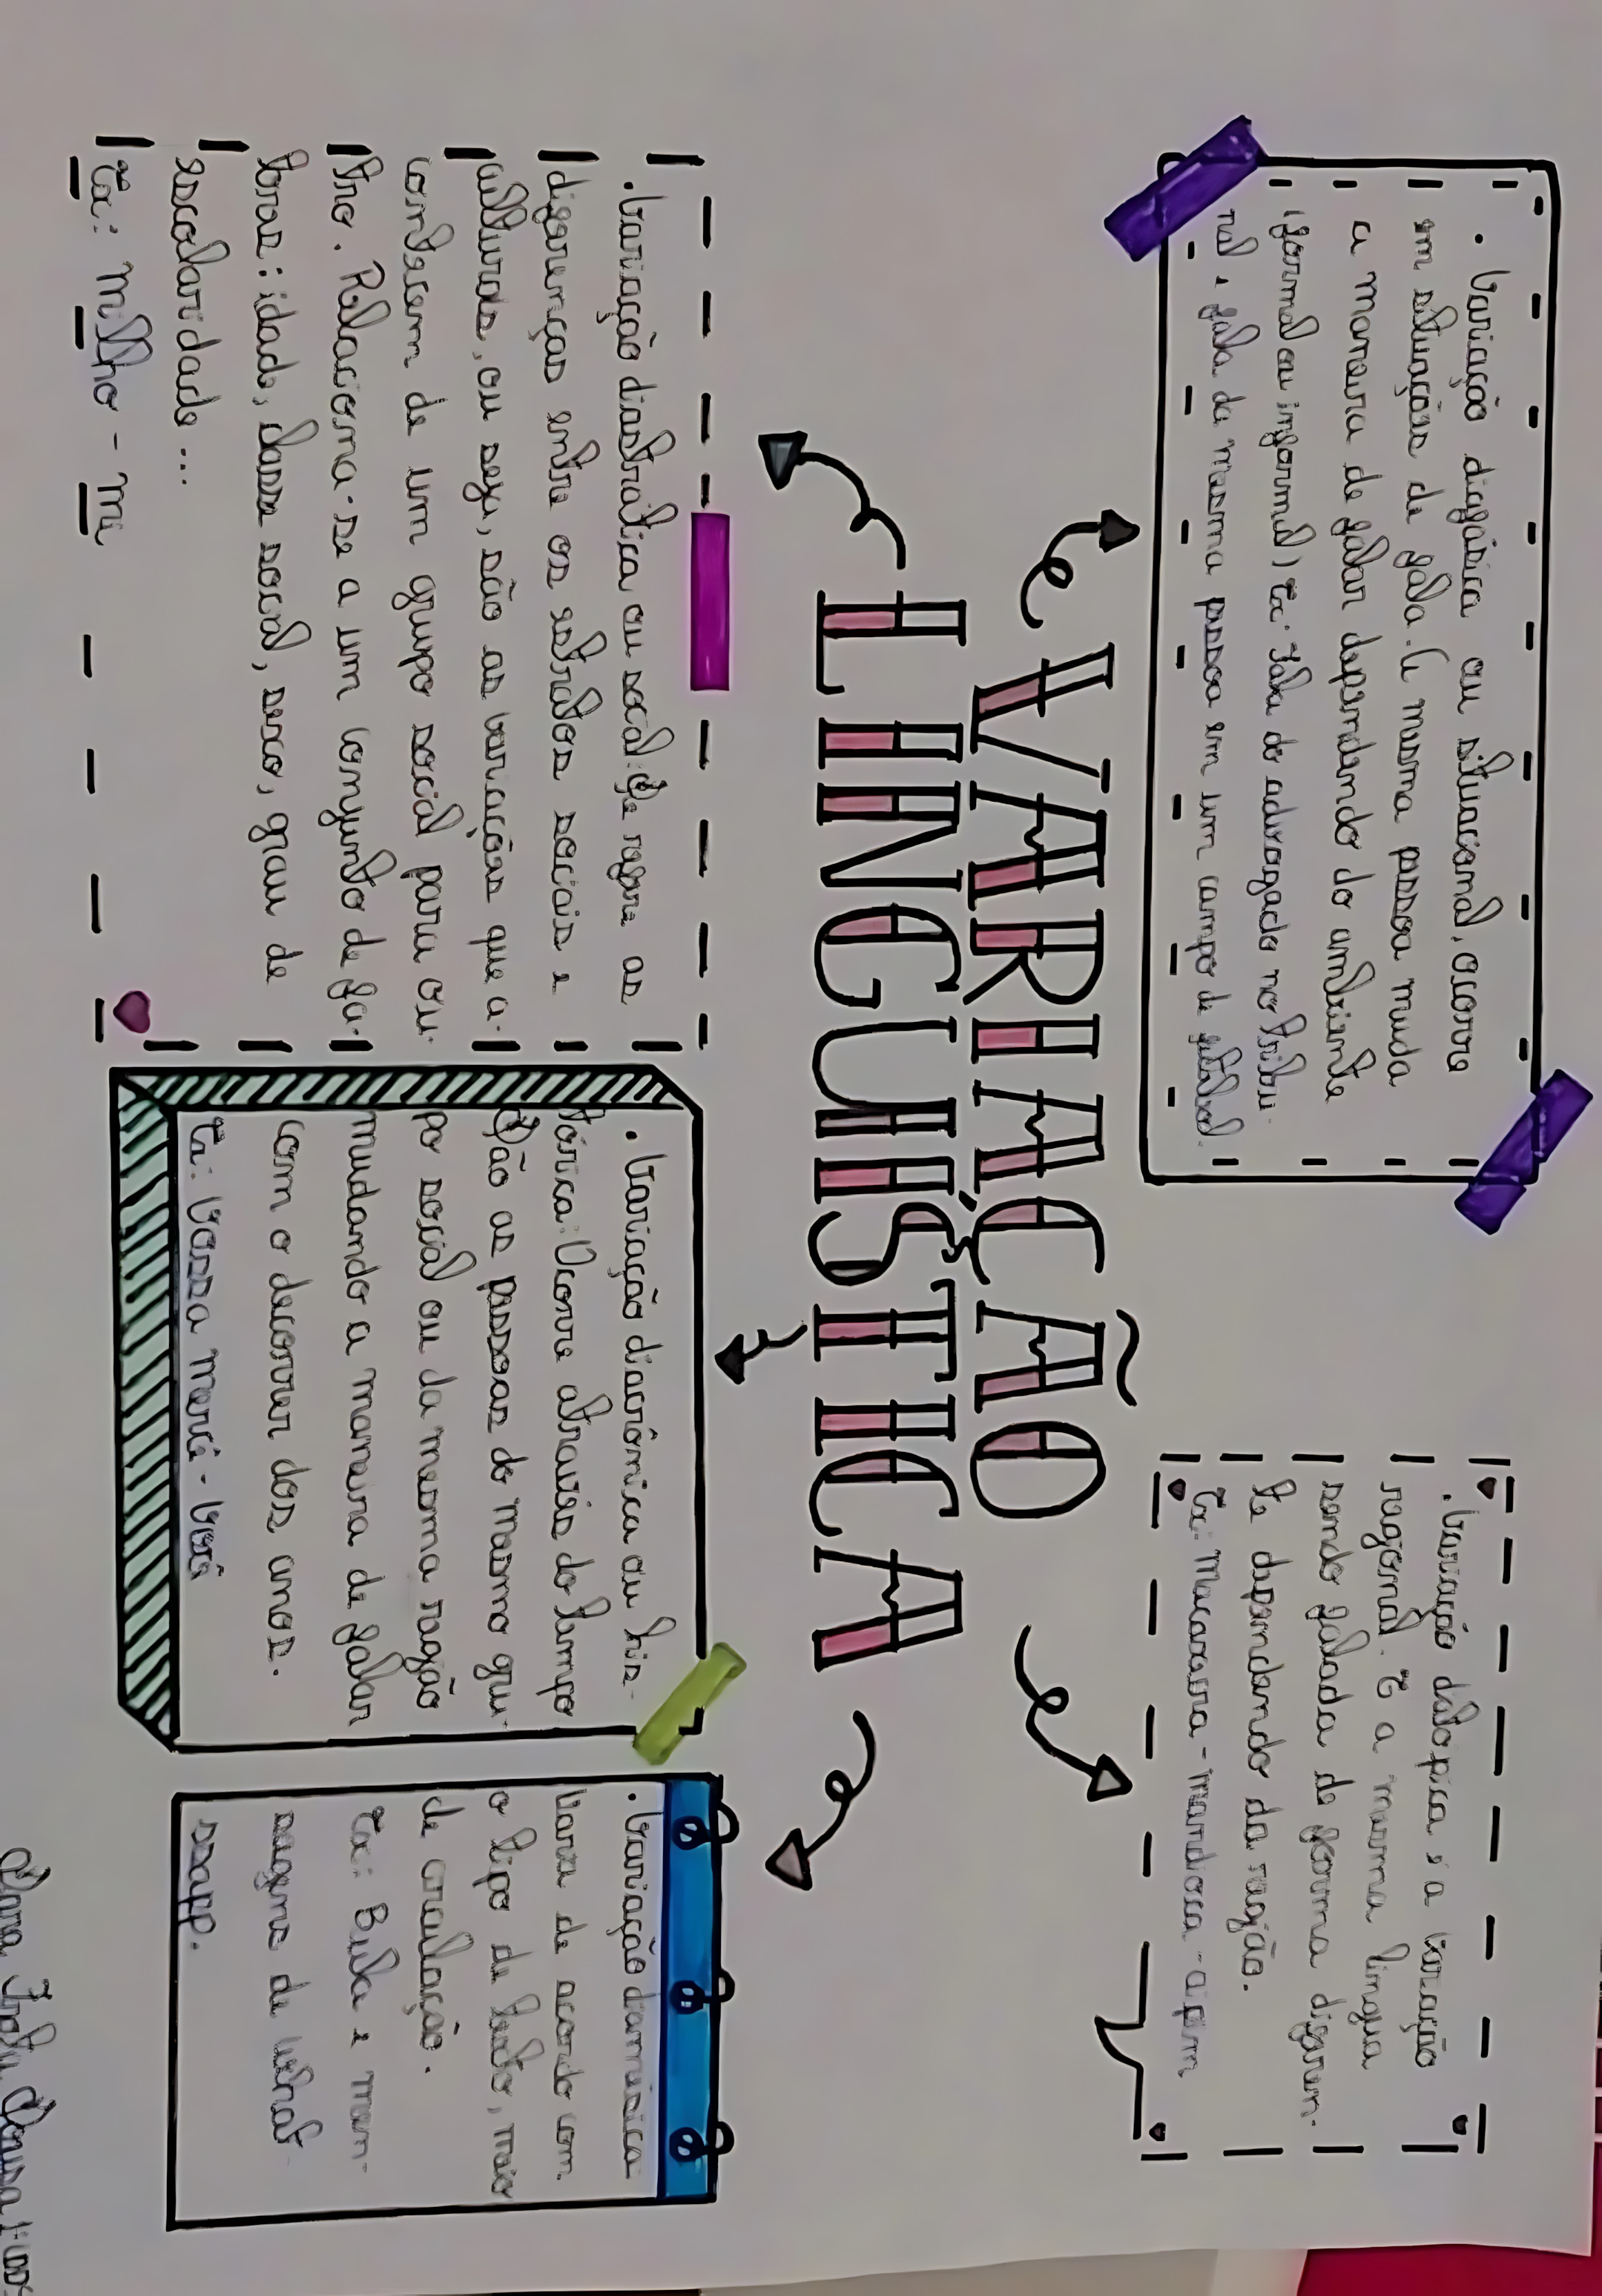 VARIAÇÃO
LINGUÍSTICA
• Variação diafásica ou situacional, ocorre
em situação de fala. (a mesma pessoa muda
a maneira de falar dependendo do ambiente
(formal ou informal) Ex: Fala do advogado no tribu-
nal e fala da mesma pessoa em um campo de futebol.
• Variação diatópica é a variação
regional. É a mesma língua
sendo falada de forma diferen-
te dependendo da região.
Ex: macaxera - mandioca - aipim
• Variação diastrática ou social: Se refere as
diferenças entre os estratos sociais e
culturais, ou seja, são as variações que a-
contecem de um grupo social para ou-
tro. Relaciona-se a um conjunto de fa-
tores: idade, classe social, sexo, grau de
escolaridade...
Ex: milho - mi
• Variação diacrônica ou his-
tórica: Ocorre através do tempo
São as pessoas do mesmo gru-
po social ou da mesma região
mudando a maneira de falar
com o decorrer dos anos.
Ex: Vossa mercê - você
• Variação diamésica
varia de acordo com
o tipo de texto, meio
de circulação.
Ex: Bula e men-
sagens de what-
ssapp.